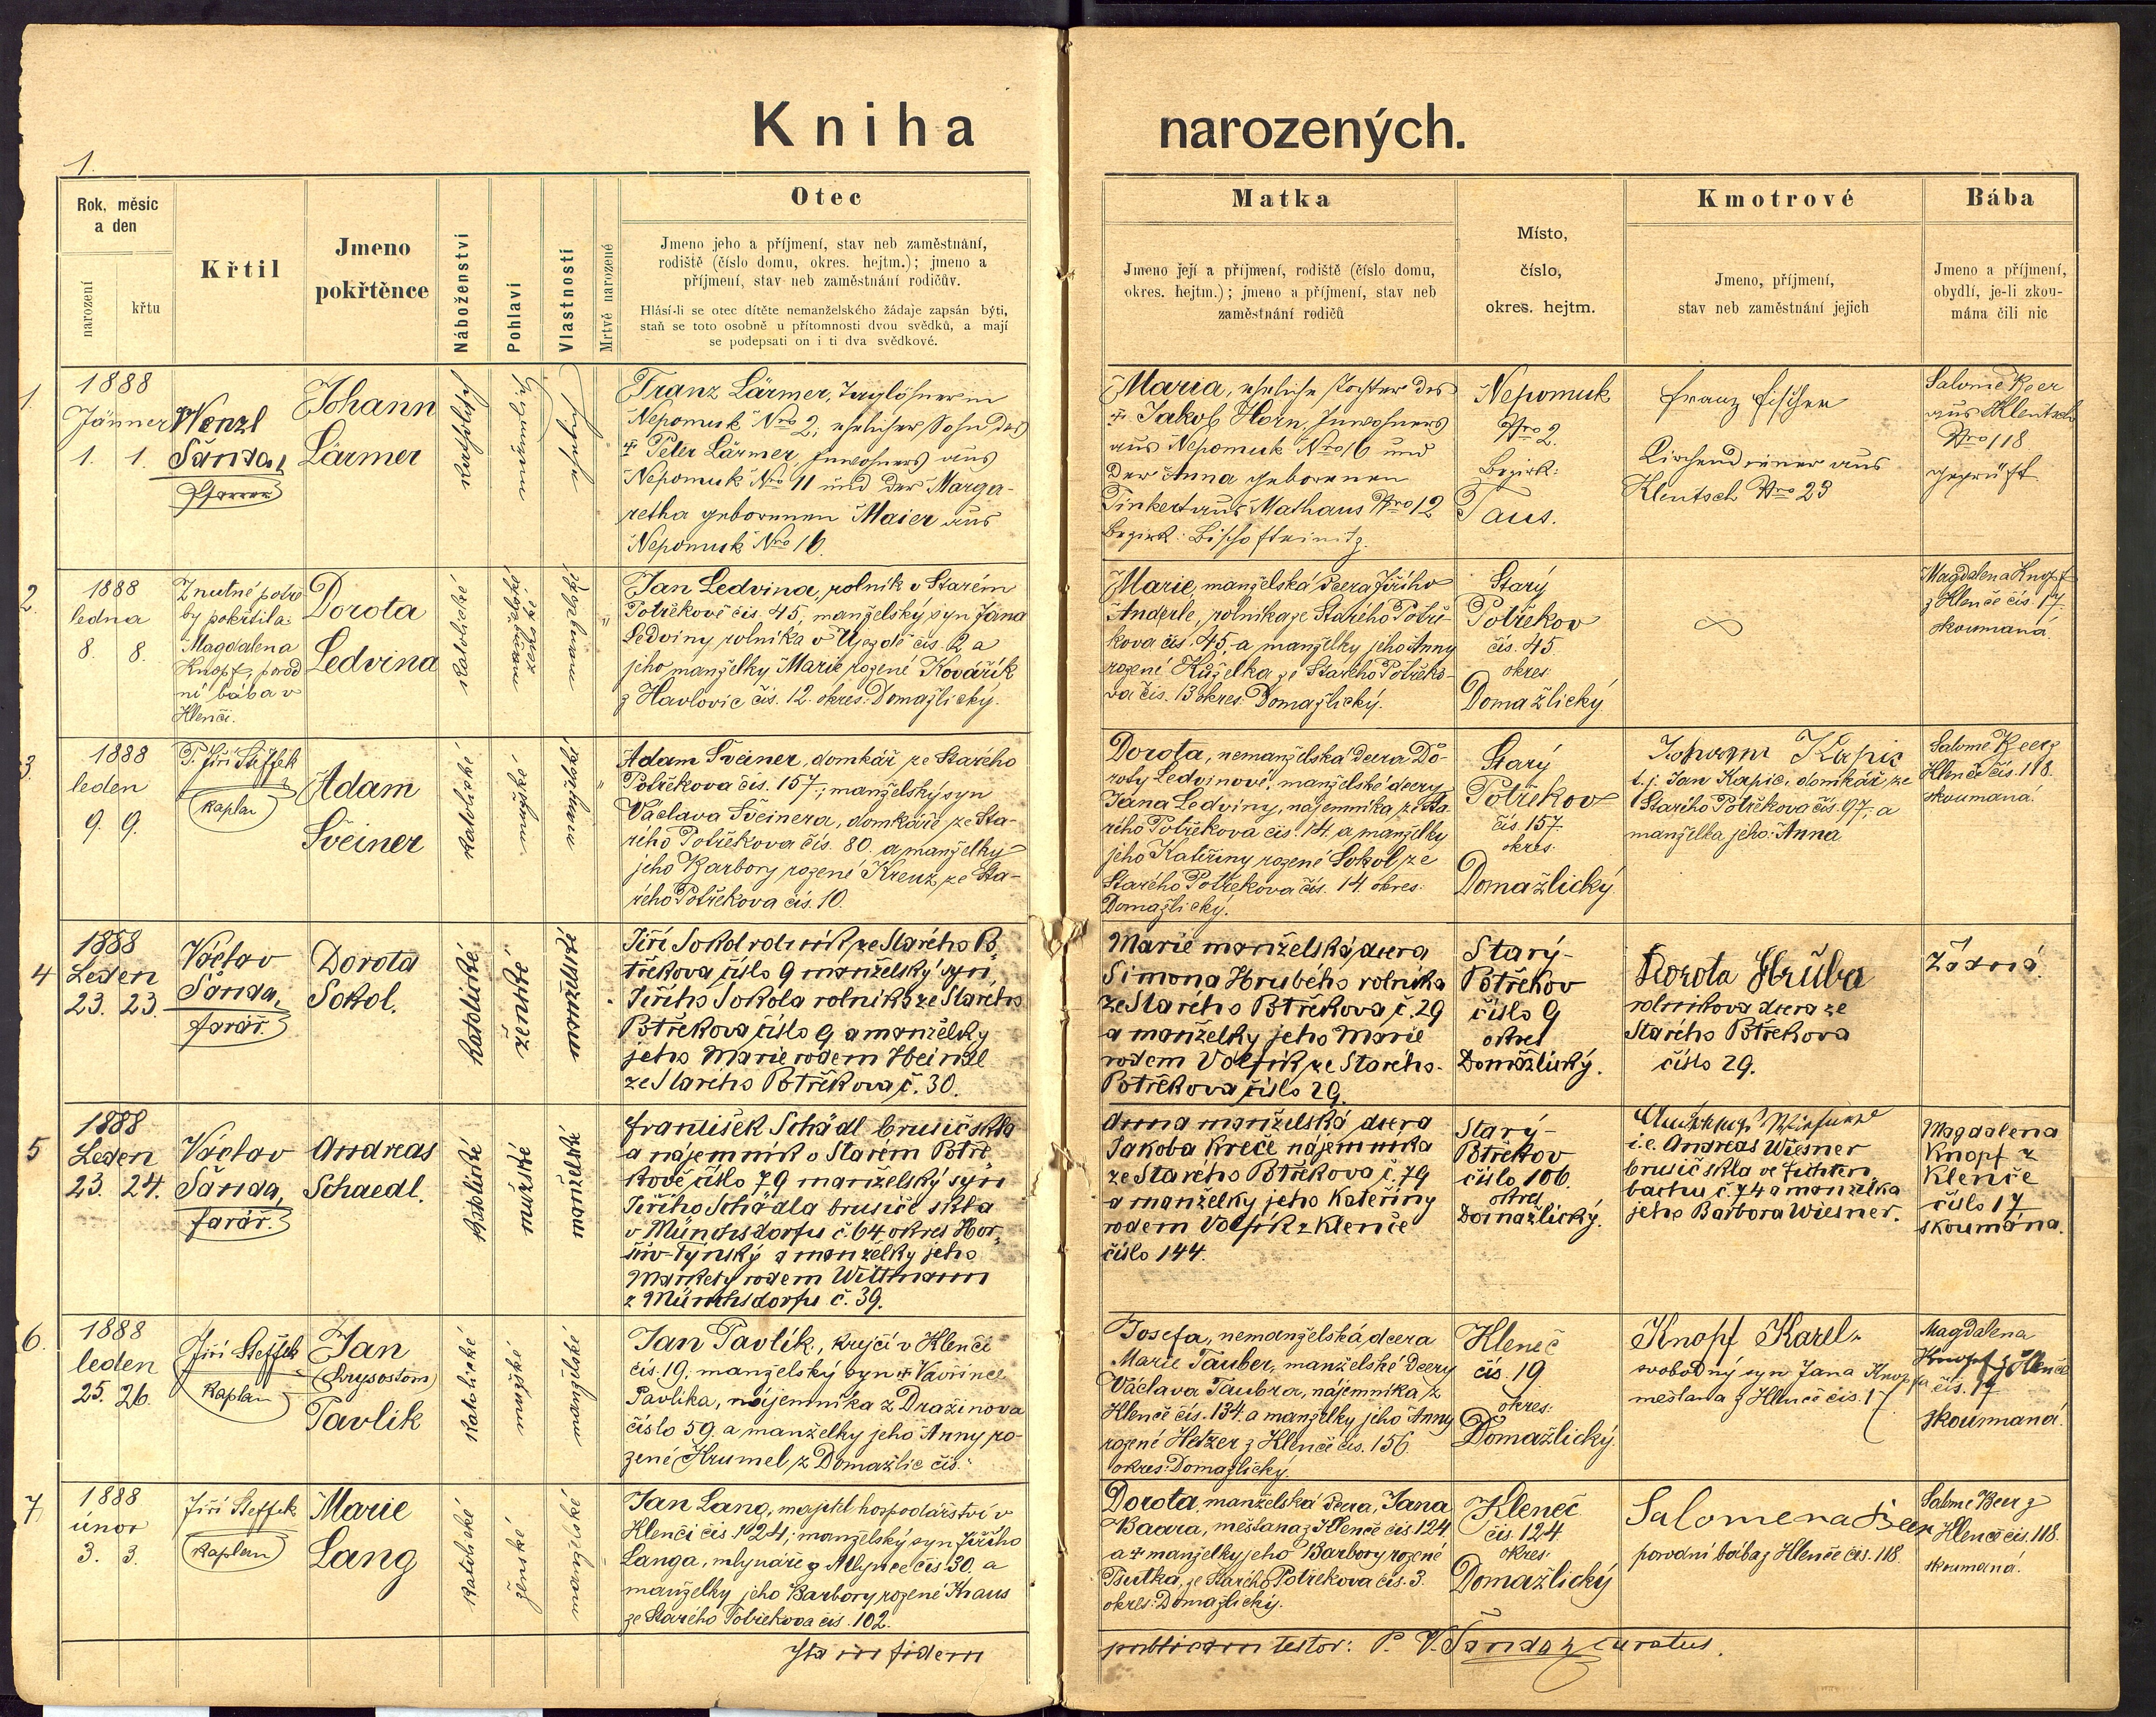 Kniha narozených.
1.
Rok, měsíc
a den
narození
křtu
Křtil
Jmeno
pokřtěnce
Náboženství
Pohlaví
Vlastnosti
Mrtvě narozené
Otec
Jmeno jeho a příjmení, stav neb zaměstnání,
rodiště (číslo domu, okres. hejtm.); jmeno a
příjmení, stav neb zaměstnání rodičův.
Hlásí-li se otec dítěte nemanželského žádaje zapsán býti,
staň se toto osobně u přítomnosti dvou svědků, a mají
se podepsati on i ti dva svědkové.
Matka
Jmeno její a příjmení, rodiště (číslo domu,
okres. hejtm.); jmeno a příjmení, stav neb
zaměstnání rodičů
Místo,
číslo,
okres. hejtm.
Kmotrové
Jmeno, příjmení,
stav neb zaměstnání jejich
Bába
Jmeno a příjmení,
obydlí, je-li zkou-
mána čili nic
1.
1888
Jänner
1. 1.
Wenzl
Šanda,
Pfarrer
Johann
Lärmer
katholisch
Franz Lärmer, Taglöhner in
Nepomuk Nro 2, ehelicher Sohn des
† Peter Lärmer, Inwohners aus
Nepomuk Nro 11 und der Marga-
retha geborenen Maier aus
Nepomuk Nro 16.
Maria, eheliche Tochter des
† Jakob Horn, Inwohners
aus Nepomuk Nro 16 und
der Anna geborenen
Tinkert aus Mathaus Nro 12
Bezirk: Bischofteinitz.
Nepomuk
Nro 2.
Bezirk:
Taus.
Franz Fischer
Kirchendiener aus
Klentsch Nro 23
Salome Beer
aus Klentsch
Nro 118
geprüft
2.
1888
ledna
8. 8.
Z nutné potře
by pokřtila:
Magdalena
Knopf, porod
ní bába v
Klenčí.
Dorota
Ledvina
katolické
Jan Ledvina, rolník v Starém
Potřekově čís. 45, manželský syn Jana
Ledviny rolníka v Újezdě čís. 2 a
jeho manželky Marie rozené Kovářík
z Havlovic čís. 12. okres: Domažlický.
Marie, manželská dcera Jiřího
Anderle, rolníka ze Starého Potře-
kova čís. 45, a manželky jeho Anny
rozené Kuželka ze Starého Potřeko-
va čís. 13 okres: Domažlický.
Starý
Potřekov
čís. 45
okres
Domažlický
Magdalena Knopf
z Klenče čís. 17.
skoumaná.
3.
1888
leden
9. 9.
P. Jiří Steffek
kaplan
Adam
Šveiner
katolické
mužské
Adam Šveiner, domkář ze Starého
Potřekova čís. 157; manželský syn
Václava Šveinera, domkáře ze Sta-
rého Potřekova čís. 80. a manželky
jeho Barbory rozené Kreuz ze Sta-
rého Potřekova čís. 10.
Dorota, nemanželská dcera Do-
roty Ledvinové, manželské dcery
Jana Ledviny, nájemníka ze Sta
rého Potřekova čís. 14. a manželky
jeho Kateřiny rozené Sokol ze
Starého Potřekova čís. 14. okres:
Domažlický.
Starý
Potřekov
čís. 157.
okres:
Domažlický
Johann Kapic
t. j. Jan Kapic, domkář ze
Starého Potřekova čís. 97, a
manželka jeho: Anna
Salome Beer z
Klenče čís. 118.
skoumaná.
4
1888
Leden
23. 23.
Václav
Šanda,
farář.
Dorota
Sokol.
katolické
ženské
manželské
Jiří Sokol rolník ze Starého Po-
třekova číslo 9 manželský syn
Jiřího Sokola rolníka ze Starého
Potřekova číslo 9 a manželky
jeho Marie rodem Heindl
ze Starého Potřekova č. 30.
Marie manželská dcera
Simona Hrubého rolníka
ze Starého Potřekova č. 29
a manželky jeho Marie
rodem Volfík ze Starého
Potřekova číslo 29.
Starý-
Potřekov
číslo 9
okres
Domažlický.
Dorota Hrůba
rolníkova dcera ze
Starého Potřekova
číslo 29.
Žádná.
5
1888
Leden
23. 24.
Václav
Šanda,
farář.
Andreas
Schaedl.
katolické
mužské
manželské
František Schädl brusič skla
a nájemník v Starém Potře-
kově číslo 79 manželský syn
Jiřího Schädla brusiče skla
v Münchsdorfu č. 64 okres Hor-
šův-Týnský a manželky jeho
Markety rodem Wittmann
z Münchsdorfu č. 39.
Anna manželská dcera
Jakoba Kreče nájemníka
ze Starého Potřekova č. 79
a manželky jeho Kateřiny
rodem Volfík z Klenče
číslo 144.
Starý-
Potřekov
číslo 106.
okres
Domažlický.
i.e. Andreas Wiesner
brusič skla ve Fichten
bachu č. 74 a manželka
jeho Barbora Wiesner.
Magdalena
Knopf z
Klenče
číslo 17
skoumána.
6.
1888
leden
25. 26.
Jiří Steffek
Kaplan
Jan
(Krysostom)
Pavlik
katolické
mužské
manželské
Jan Pavlík, krejčí v Klenčí
čís. 19, manželský syn † Vavřince
Pavlíka, nájemníka z Dražinova
číslo 59. a manželky jeho Anny ro-
zené Krumel z Domažlic čís.
Josefa, nemanželská dcera
Marie Tauber, manželské dcery
Václava Taubra, nájemníka z
Klenče čís. 134. a manželky jeho Anny
rozené Hetzer z Klenče čís. 156
okres: Domažlický.
Kleneč
čís. 19
okres:
Domažlický
Knopf Karel
svobodný syn Jana Knopfa
měšťana z Klenče čís. 17
Magdalena
Knopf z Klenče
čís. 17
skoumaná.
7.
1888
únor
3. 3.
Jiří Steffek
Kaplan
Marie
Lang
katolické
ženské
manželské
Jan Lang, majitel hospodářství v
Klenčí čís. 124; manželský syn Jiřího
Langa, mlynáře z Mlýnce čís. 30. a
manželky jeho Barbory rozené Kraus
ze Starého Potřekova čís. 102.
Dorota, manželská dcera, Jana
Baara, měšťana z Klenče čís 124
a † manželky jeho Barbory rozené
Psutka, ze Starého Potřekova čís. 3.
okres: Domažlický.
Kleneč
čís. 124
okres
Domažlický
Salomena Beer
porodní bába z Klenče čís. 118.
Salome Beer z
Klenče čís. 118.
skoumaná.
Ita in fidem publicam testor: P. V. Šanda, curatus.